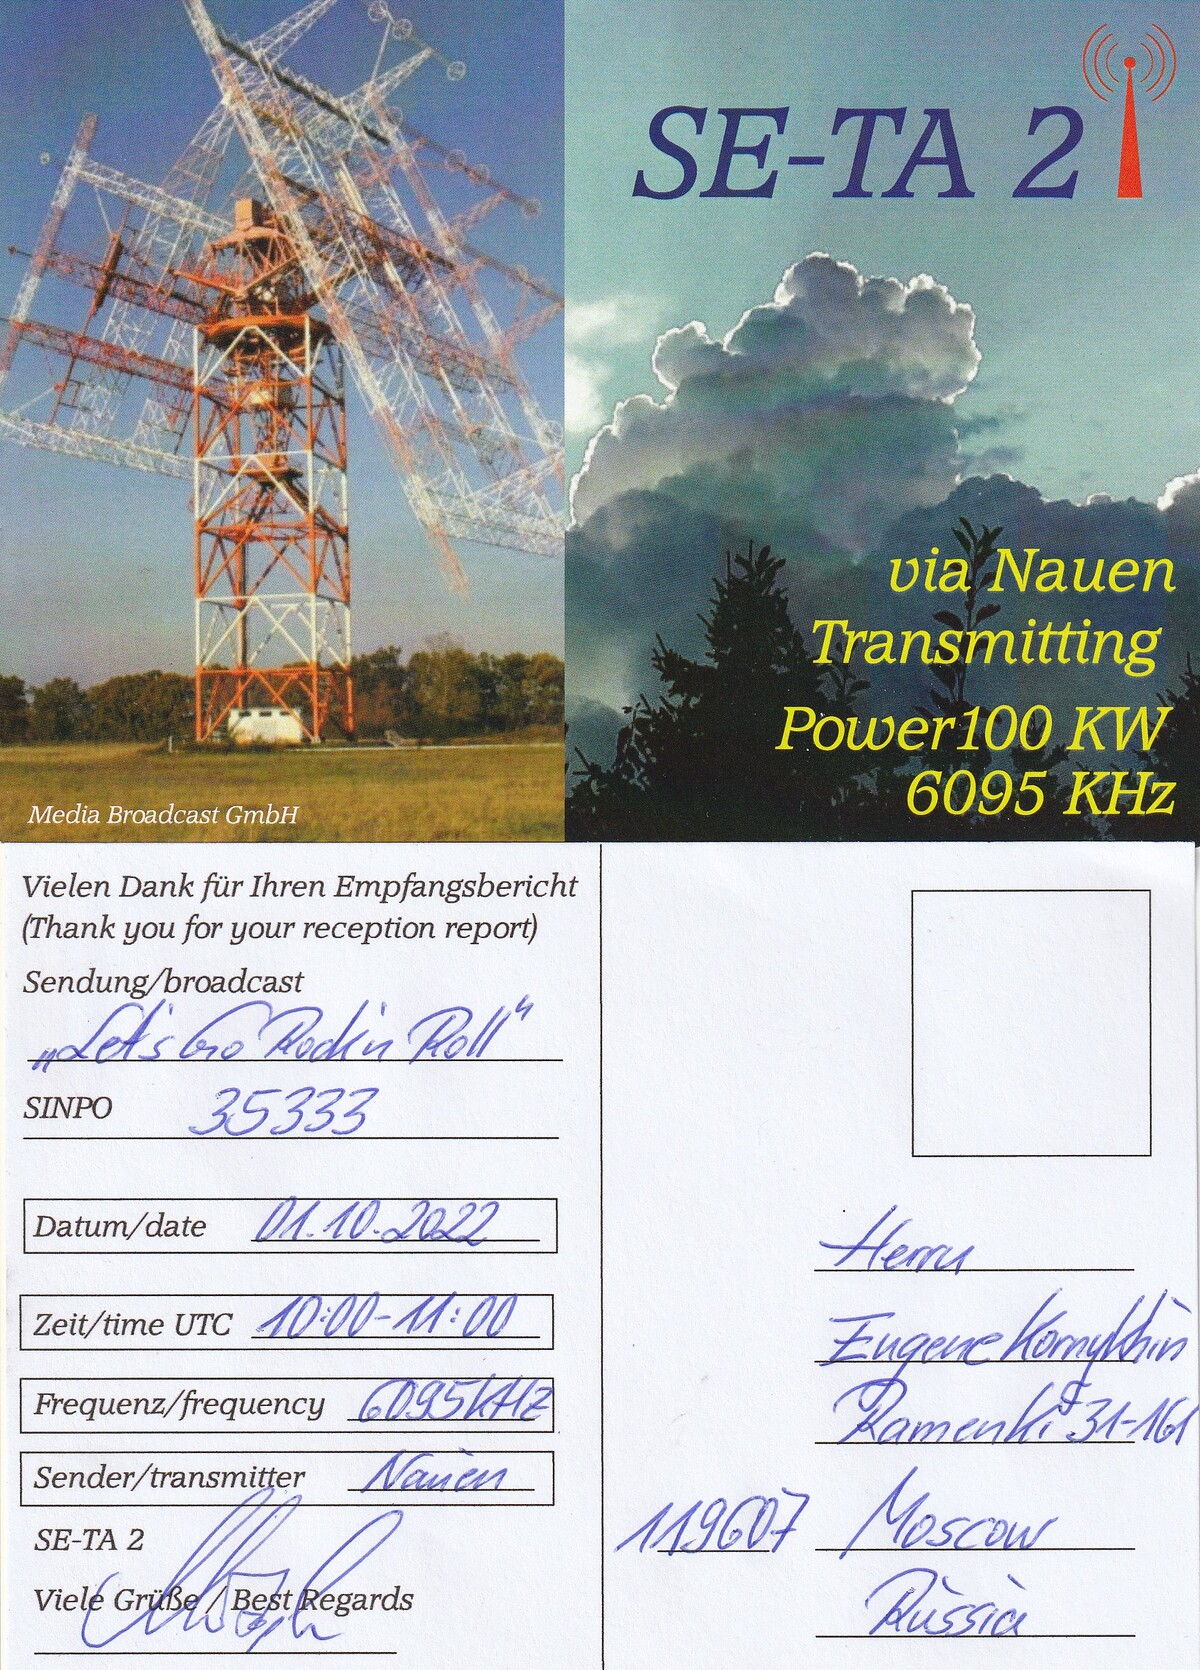 SE-TA 2
via Nauen
Transmitting
Power100 KW
6095 KHz
Media Broadcast GmbH
Vielen Dank für Ihren Empfangsbericht
(Thank you for your reception report)
Sendung/broadcast
„Let's Go Rock'n Roll“
SINPO 35333
Datum/date 01.10.2022
Zeit/time UTC 10:00-11:00
Frequenz/frequency 6095KHZ
Sender/transmitter Nauen
SE-TA 2
Viele Grüße / Best Regards
Herrn
Eugene Kornykhin
Ramenki 31-161
119607 Moscow
Russia